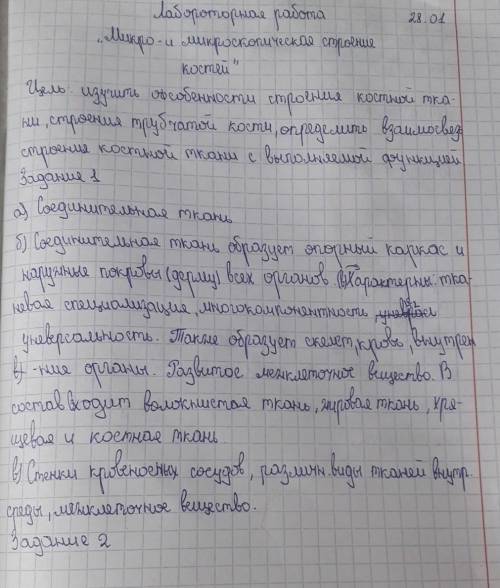 Лабороторная работа 28.01
„Микро-и микроскопическая строение
костей"
Цель: изучить особенности строения костной тка-
ни, строения трубчатой кости, определить взаимосвяз
строение костной ткани с выполняемой функцией
Задание 1
а) Соединительная ткань
б) Соединительная ткань образует опорный каркас и
наружные покровы (дерму) всех органов. Характерны: тка-
невая специализация, многокомпонентность
универсальность. Также образует скелет, кровь, внутрен
-ние органы. Развитое межклеточное вещество. В
состав входит волокнистая ткань, жировая ткань, хря-
щевая и костная ткань
в) Стенки кровеносных сосудов, различн. виды тканей внутр.
среды, межклеточное вещество.
Задание 2